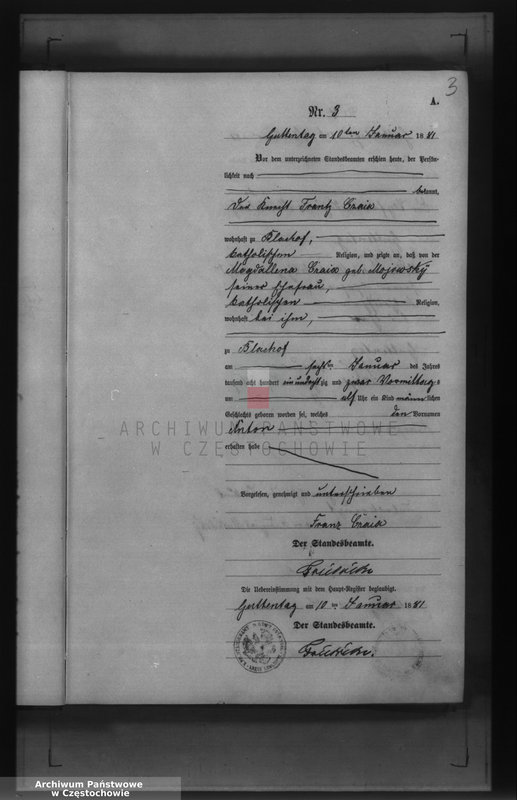 3
A.
Nr. 3
Guttentag am 10ten Januar 1881
Vor dem unterzeichneten Standesbeamten erschien heute, der Persön-
lichkeit nach
bekannt,
der Knecht Frantz Czaia
wohnhaft zu Blachof,
katholischen Religion, und zeigte an, daß von der
Magdallena Czaia geb. Mojowsky
seiner Ehefrau,
katholischen Religion,
wohnhaft bei ihm,
zu Blachof
am sechsten Januar des Jahres
tausend acht hundert ein und achtzig und zwar Vormittags
um elf Uhr ein Kind männlichen
Geschlechts geboren worden sei, welches den Vornamen
Anton
erhalten habe
ARCHIWUM PAŃSTWOWE
W CZĘSTOCHOWIE
Vorgelesen, genehmigt und unterschrieben
Franz Czaia
Der Standesbeamte.
Die Uebereinstimmung mit dem Haupt-Register beglaubigt.
Guttentag am 10ten Januar 1881
Der Standesbeamte.
Archiwum Państwowe
w Częstochowie